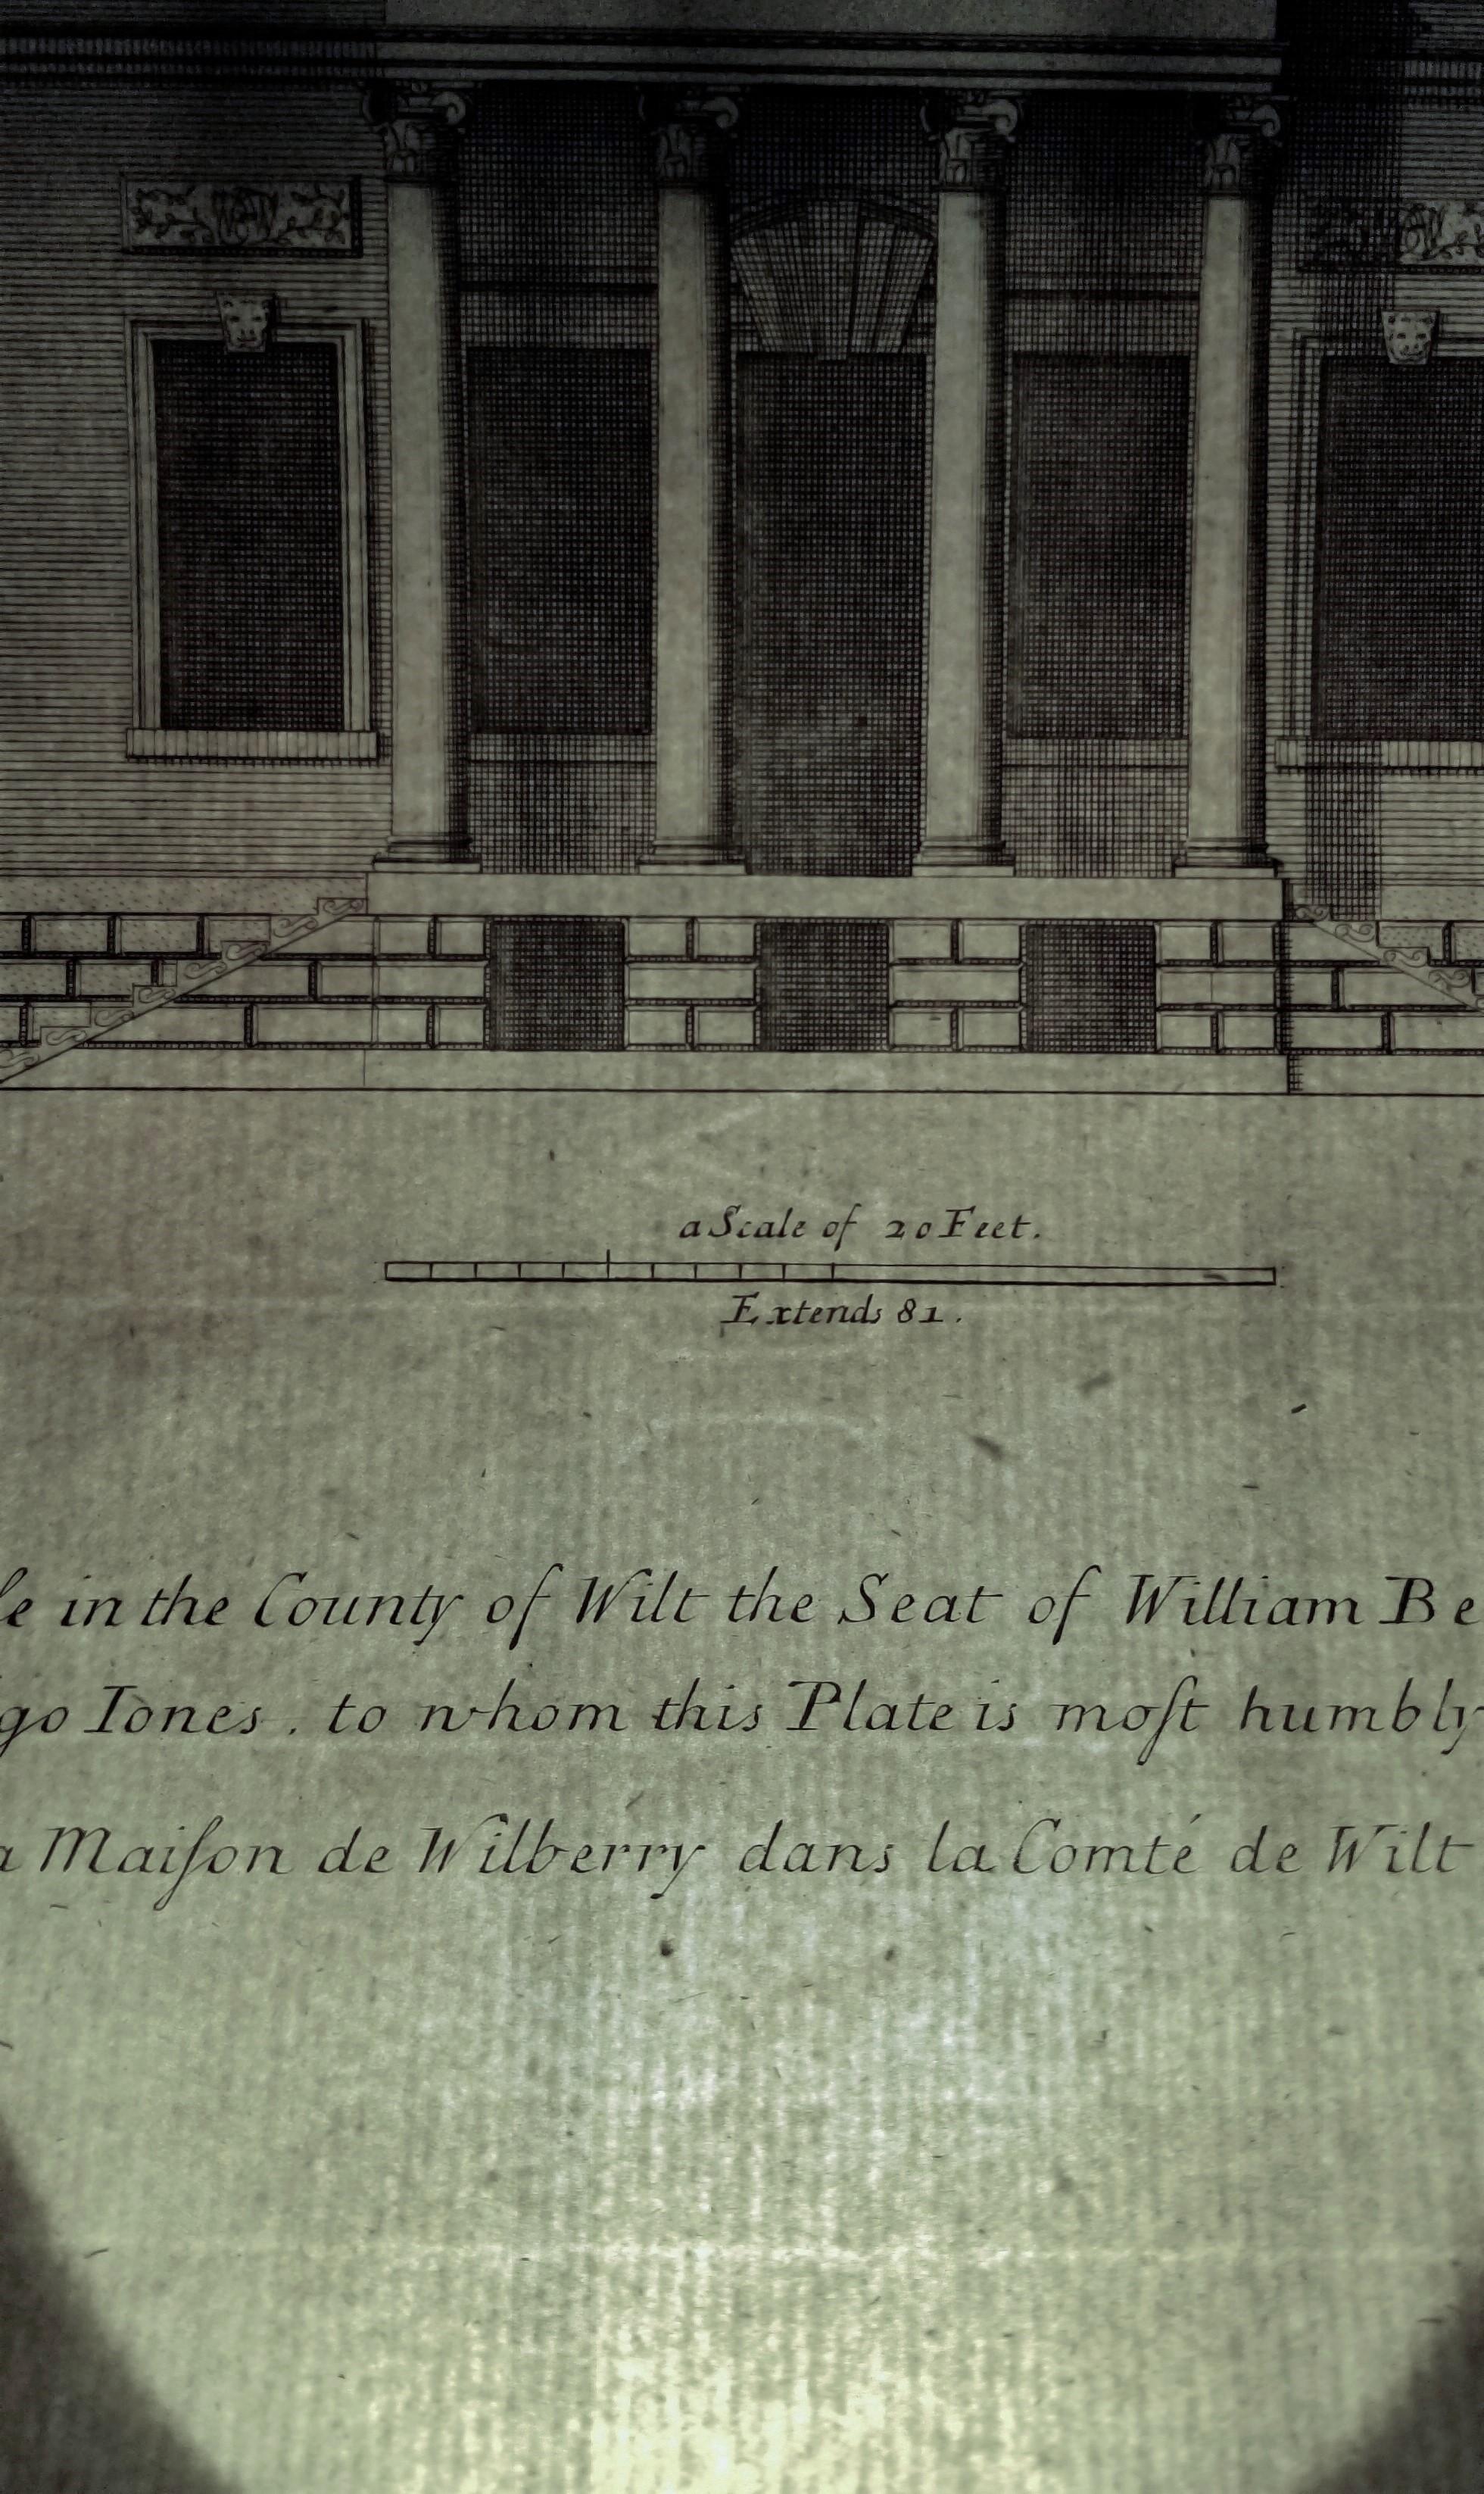 a Scale of 20 Feet.
Extends 81.
le in the County of Wilt the Seat of William Be
go Iones. to whom this Plate is moſt humbly
a Maiſon de Wilberry dans la Comté de Wilt